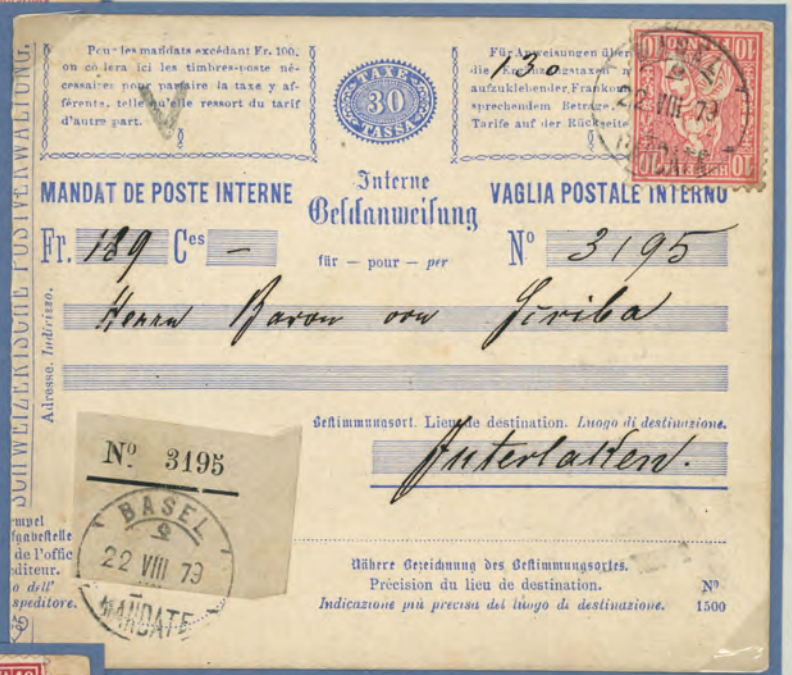 Pour les mandats excédant Fr. 100.
on colera ici les timbres-poste né-
cessaires pour parfaire la taxe y af-
férente, telle qu'elle ressort du tarif
d'autre part.
TAXE
30
TASSA
Für Anweisungen über
die Ergänzungstaxen
aufzuklebender Frankom
sprechendem Betrage.
Tarife auf der Rückseite
130
FRANCO
10 10
HELVETIA
10 10
BASEL
22 VIII 79
MANDATE
SCHWEIZERISCHE POSTVERWALTUNG.
MANDAT DE POSTE INTERNE
Interne
Geldanweisung
VAGLIA POSTALE INTERNO
Fr. 189 Ces —
für — pour — per
No 3195
Adresse. Indirizzo.
Herrn Baron von Scriba
Bestimmungsort. Lieu de destination. Luogo di destinazione.
Interlaken.
No. 3195
BASEL
22 VIII 79
MANDATE
mpel
fgabestelle
de l'offic
éditeur.
o dell'
speditore.
Nähere Bezeichnung des Bestimmungsortes.
Précision du lieu de destination.
Indicazione più precisa del luogo di destinazione.
No
1500